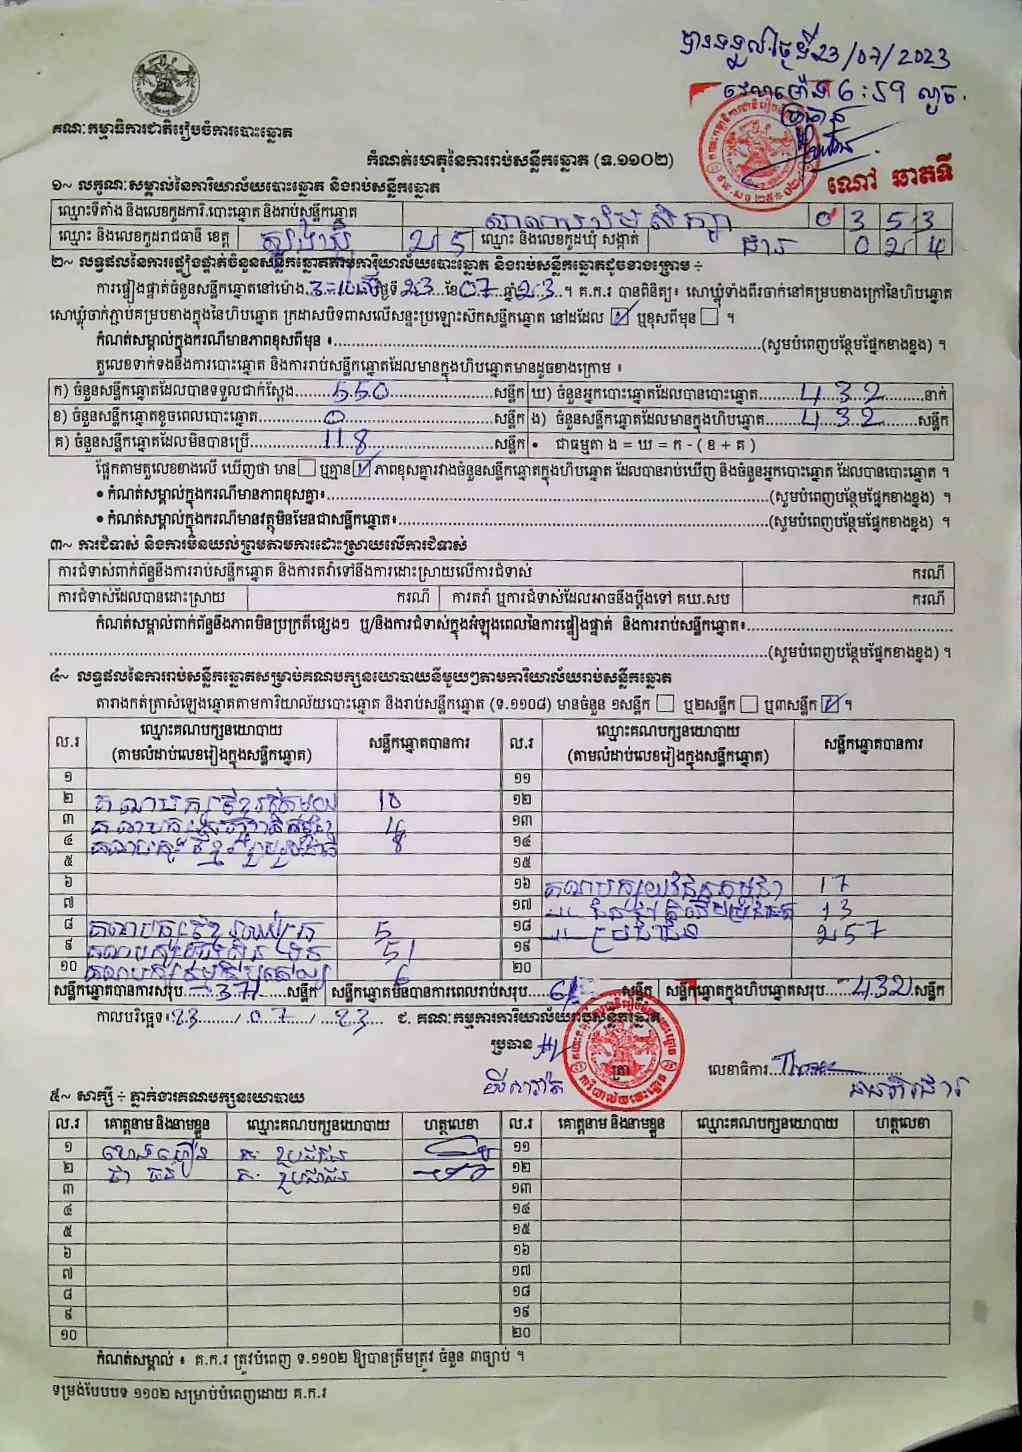 បានទទួលថ្ងៃទី23/07/2023
វេលាម៉ោង 6:59 ល្ងាច.
ប្រធាន
គណៈកម្មាធិការជាតិរៀបចំការបោះឆ្នោត
កំណត់ហេតុនៃការរាប់សន្លឹកឆ្នោត (ទ.១១០២)
ណៅ ឆាតទី
១~ លក្ខណៈសម្គាល់នៃការិយាល័យបោះឆ្នោត និងរាប់សន្លឹកឆ្នោត
ឈ្មោះទីតាំង និងលេខកូដការិ.បោះឆ្នោត និងរាប់សន្លឹកឆ្នោត 0 3 5 3
ឈ្មោះ និងលេខកូដរាជធានី ខេត្ត 2 5 ឈ្មោះ និងលេខកូដឃុំ សង្កាត់ 0 2 4
២~ លទ្ធផលនៃការផ្ទៀងផ្ទាត់ចំនួនសន្លឹកឆ្នោតតាមការិយាល័យបោះឆ្នោត និងរាប់សន្លឹកឆ្នោតដូចខាងក្រោម ÷
ការផ្ទៀងផ្ទាត់ចំនួនសន្លឹកឆ្នោតនៅម៉ោង 3:10 ថ្ងៃទី 23 ខែ 07 ឆ្នាំ 23 ។ គ.ក.រ បានពិនិត្យ៖ សោឃ្លុំទាំងពីរចាក់នៅគម្របខាងក្រៅនៃហិបឆ្នោត
សោឃ្លុំចាក់ភ្ជាប់គម្របខាងក្នុងនៃហិបឆ្នោត ក្រដាសបិទពាសលើសន្ទះប្រឡោះស៊កសន្លឹកឆ្នោត នៅដដែល ☑ ឬខុសពីមុន ☐ ។
កំណត់សម្គាល់ក្នុងករណីមានភាពខុសពីមុន ៖ (សូមបំពេញបន្ថែមផ្នែកខាងខ្នង) ។
តួលេខទាក់ទងនឹងការបោះឆ្នោត និងការរាប់សន្លឹកឆ្នោតដែលមានក្នុងហិបឆ្នោតមានដូចខាងក្រោម ៖
ក) ចំនួនសន្លឹកឆ្នោតដែលបានទទួលជាក់ស្តែង 550 សន្លឹក ឃ) ចំនួនអ្នកបោះឆ្នោតដែលបានបោះឆ្នោត 432 នាក់
ខ) ចំនួនសន្លឹកឆ្នោតខូចពេលបោះឆ្នោត 0 សន្លឹក ង) ចំនួនសន្លឹកឆ្នោតដែលមានក្នុងហិបឆ្នោត 432 សន្លឹក
គ) ចំនួនសន្លឹកឆ្នោតដែលមិនបានប្រើ 118 សន្លឹក • ជាធម្មតា ង = ឃ = ក - ( ខ + គ )
ផ្អែកតាមតួលេខខាងលើ ឃើញថា មាន ☐ ឬគ្មាន ☑ ភាពខុសគ្នារវាងចំនួនសន្លឹកឆ្នោតក្នុងហិបឆ្នោត ដែលបានរាប់ឃើញ និងចំនួនអ្នកបោះឆ្នោត ដែលបានបោះឆ្នោត ។
• កំណត់សម្គាល់ក្នុងករណីមានភាពខុសគ្នា៖ (សូមបំពេញបន្ថែមផ្នែកខាងខ្នង) ។
• កំណត់សម្គាល់ក្នុងករណីមានវត្ថុមិនមែនជាសន្លឹកឆ្នោត៖ (សូមបំពេញបន្ថែមផ្នែកខាងខ្នង) ។
៣~ ការជំទាស់ និងការមិនយល់ព្រមតាមការដោះស្រាយលើការជំទាស់
ការជំទាស់ពាក់ព័ន្ធនឹងការរាប់សន្លឹកឆ្នោត និងការតវ៉ាទៅនឹងការដោះស្រាយលើការជំទាស់ ករណី
ការជំទាស់ដែលបានដោះស្រាយ ករណី ការតវ៉ា ឬការជំទាស់ដែលអាចនឹងប្តឹងទៅ គឃ.សប ករណី
កំណត់សម្គាល់ពាក់ព័ន្ធនឹងភាពមិនប្រក្រតីផ្សេងៗ ឬ/និងការជំទាស់ក្នុងអំឡុងពេលនៃការផ្ទៀងផ្ទាត់ និងការរាប់សន្លឹកឆ្នោត៖
(សូមបំពេញបន្ថែមផ្នែកខាងខ្នង) ។
៤~ លទ្ធផលនៃការរាប់សន្លឹកឆ្នោតសម្រាប់គណបក្សនយោបាយនីមួយៗតាមការិយាល័យរាប់សន្លឹកឆ្នោត
តារាងកត់ត្រាសំឡេងឆ្នោតតាមការិយាល័យបោះឆ្នោត និងរាប់សន្លឹកឆ្នោត (ទ.១១០៨) មានចំនួន ១សន្លឹក ☐ ឬ២សន្លឹក ☐ ឬ៣សន្លឹក ☑ ។
ល.រ ឈ្មោះគណបក្សនយោបាយ (តាមលំដាប់លេខរៀងក្នុងសន្លឹកឆ្នោត) សន្លឹកឆ្នោតបានការ ល.រ ឈ្មោះគណបក្សនយោបាយ (តាមលំដាប់លេខរៀងក្នុងសន្លឹកឆ្នោត) សន្លឹកឆ្នោតបានការ
១ ១១
២ 10 ១២
៣ 4 ១៣
៤ 8 ១៤
៥ ១៥
៦ ១៦ 17
៧ ១៧ 13
៨ 5 ១៨ ប្រជាជន 257
៩ 51 ១៩
១០ 6 ២០
សន្លឹកឆ្នោតបានការសរុប 371 សន្លឹក សន្លឹកឆ្នោតមិនបានការពេលរាប់សរុប 61 សន្លឹក សន្លឹកឆ្នោតក្នុងហិបឆ្នោតសរុប 432 សន្លឹក
កាលបរិច្ឆេទ៖ 23 / 07 / 23 ជ. គណៈកម្មការការិយាល័យរាប់សន្លឹកឆ្នោត
ប្រធាន
ត្រា
លេខាធិការ
៥~ សាក្សី ÷ ភ្នាក់ងារគណបក្សនយោបាយ
ល.រ គោត្តនាម និងនាមខ្លួន ឈ្មោះគណបក្សនយោបាយ ហត្ថលេខា ល.រ គោត្តនាម និងនាមខ្លួន ឈ្មោះគណបក្សនយោបាយ ហត្ថលេខា
១ ១១
២ ១២
៣ ១៣
៤ ១៤
៥ ១៥
៦ ១៦
៧ ១៧
៨ ១៨
៩ ១៩
១០ ២០
កំណត់សម្គាល់ ៖ គ.ក.រ ត្រូវបំពេញ ទ.១១០២ ឱ្យបានត្រឹមត្រូវ ចំនួន ៣ច្បាប់ ។
ទម្រង់បែបបទ ១១០២ សម្រាប់បំពេញដោយ គ.ក.រ